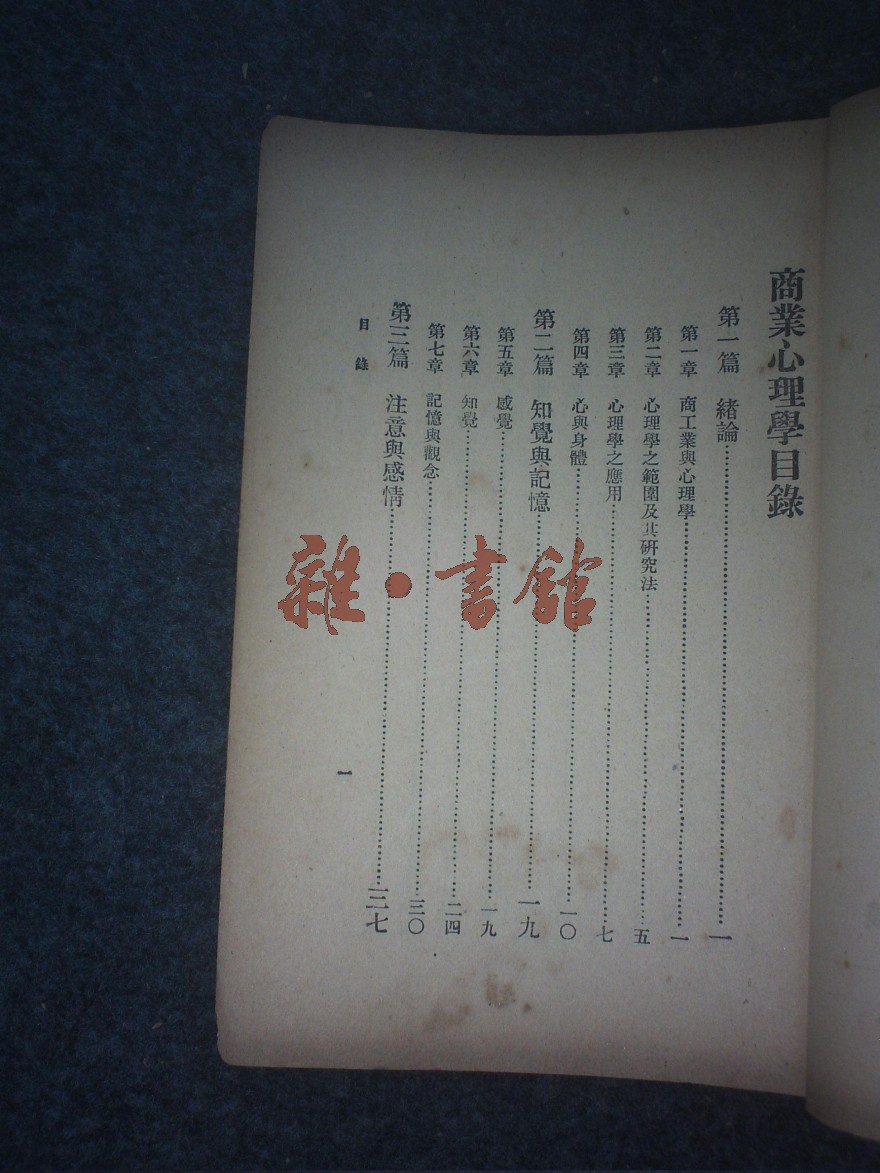 商業心理學目錄
第一篇 緒論……一
第一章 商工業與心理學……一
第二章 心理學之範圍及其硏究法……五
第三章 心理學之應用……七
第四章 心與身體……一〇
第二篇 知覺與記憶……一九
第五章 感覺……一九
第六章 知覺……二四
第七章 記憶與觀念……三〇
第三篇 注意與感情……三七
目錄
一
雜·書館